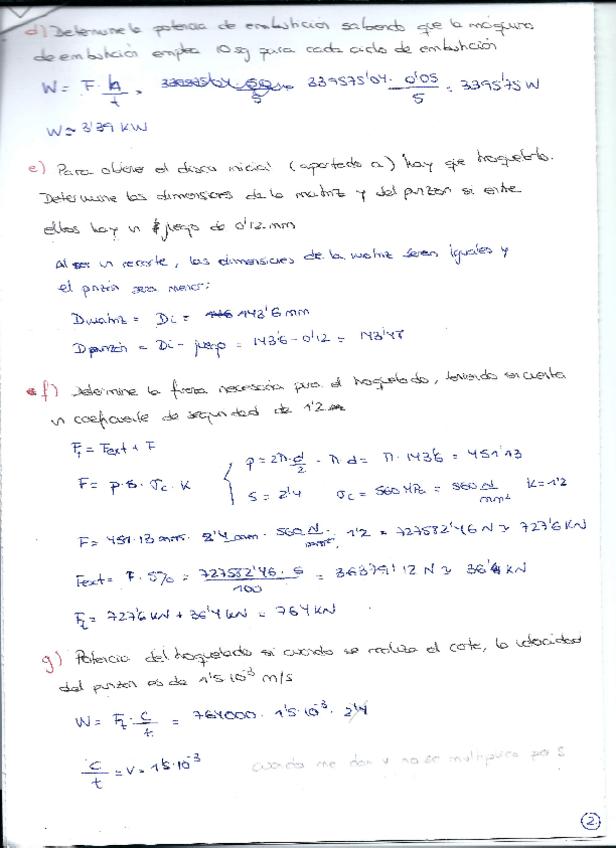 d) Determine la potencia de embutición sabiendo que la máquina
de embutición emplea 10 sg para cada ciclo de embutición
W = F · h/t = 339575'04 · 0'05/5 = 3395'75 W
W = 3'39 KW
e) Para obtener el disco inicial (apartado a) hay que troquelarlo.
Determine las dimensiones de la matriz y del punzón si entre
ellos hay un juego de 0'12 mm
Al ser un recorte, las dimensiones de la matriz seran iguales y
el punzón sera menor:
Dmatriz = Di = 143'6 mm
Dpunzón = Di - juego = 143'6 - 0'12 = 143'48
f) Determine la fuerza necesaria para el troquelado, teniendo en cuenta
un coeficiente de seguridad de 1'2
Ft = Fext + F
p = 2π·d/2 = π·d = π·143'6 = 451'13
F = p·s·σc·K
s = 2'4 σc = 560 MPa = 560 N/mm² K = 1'2
F = 451'13 mm · 2'4 mm · 560 N/mm² · 1'2 = 727582'46 N ≈ 727'6 KN
Fext = F · 5% = 727582'46 · 5/100 = 36379'12 N ≈ 36'4 KN
Ft = 727'6 KN + 36'4 KN = 764 KN
g) Potencia del troquelado si cuando se realiza el corte, la velocidad
del punzón es de 1'5·10⁻³ m/s
W = Ft · c/t = 764000 · 1'5·10⁻³ · 2'4
c/t = v = 1'5·10⁻³ cuando me dan v no se multiplica por s
2